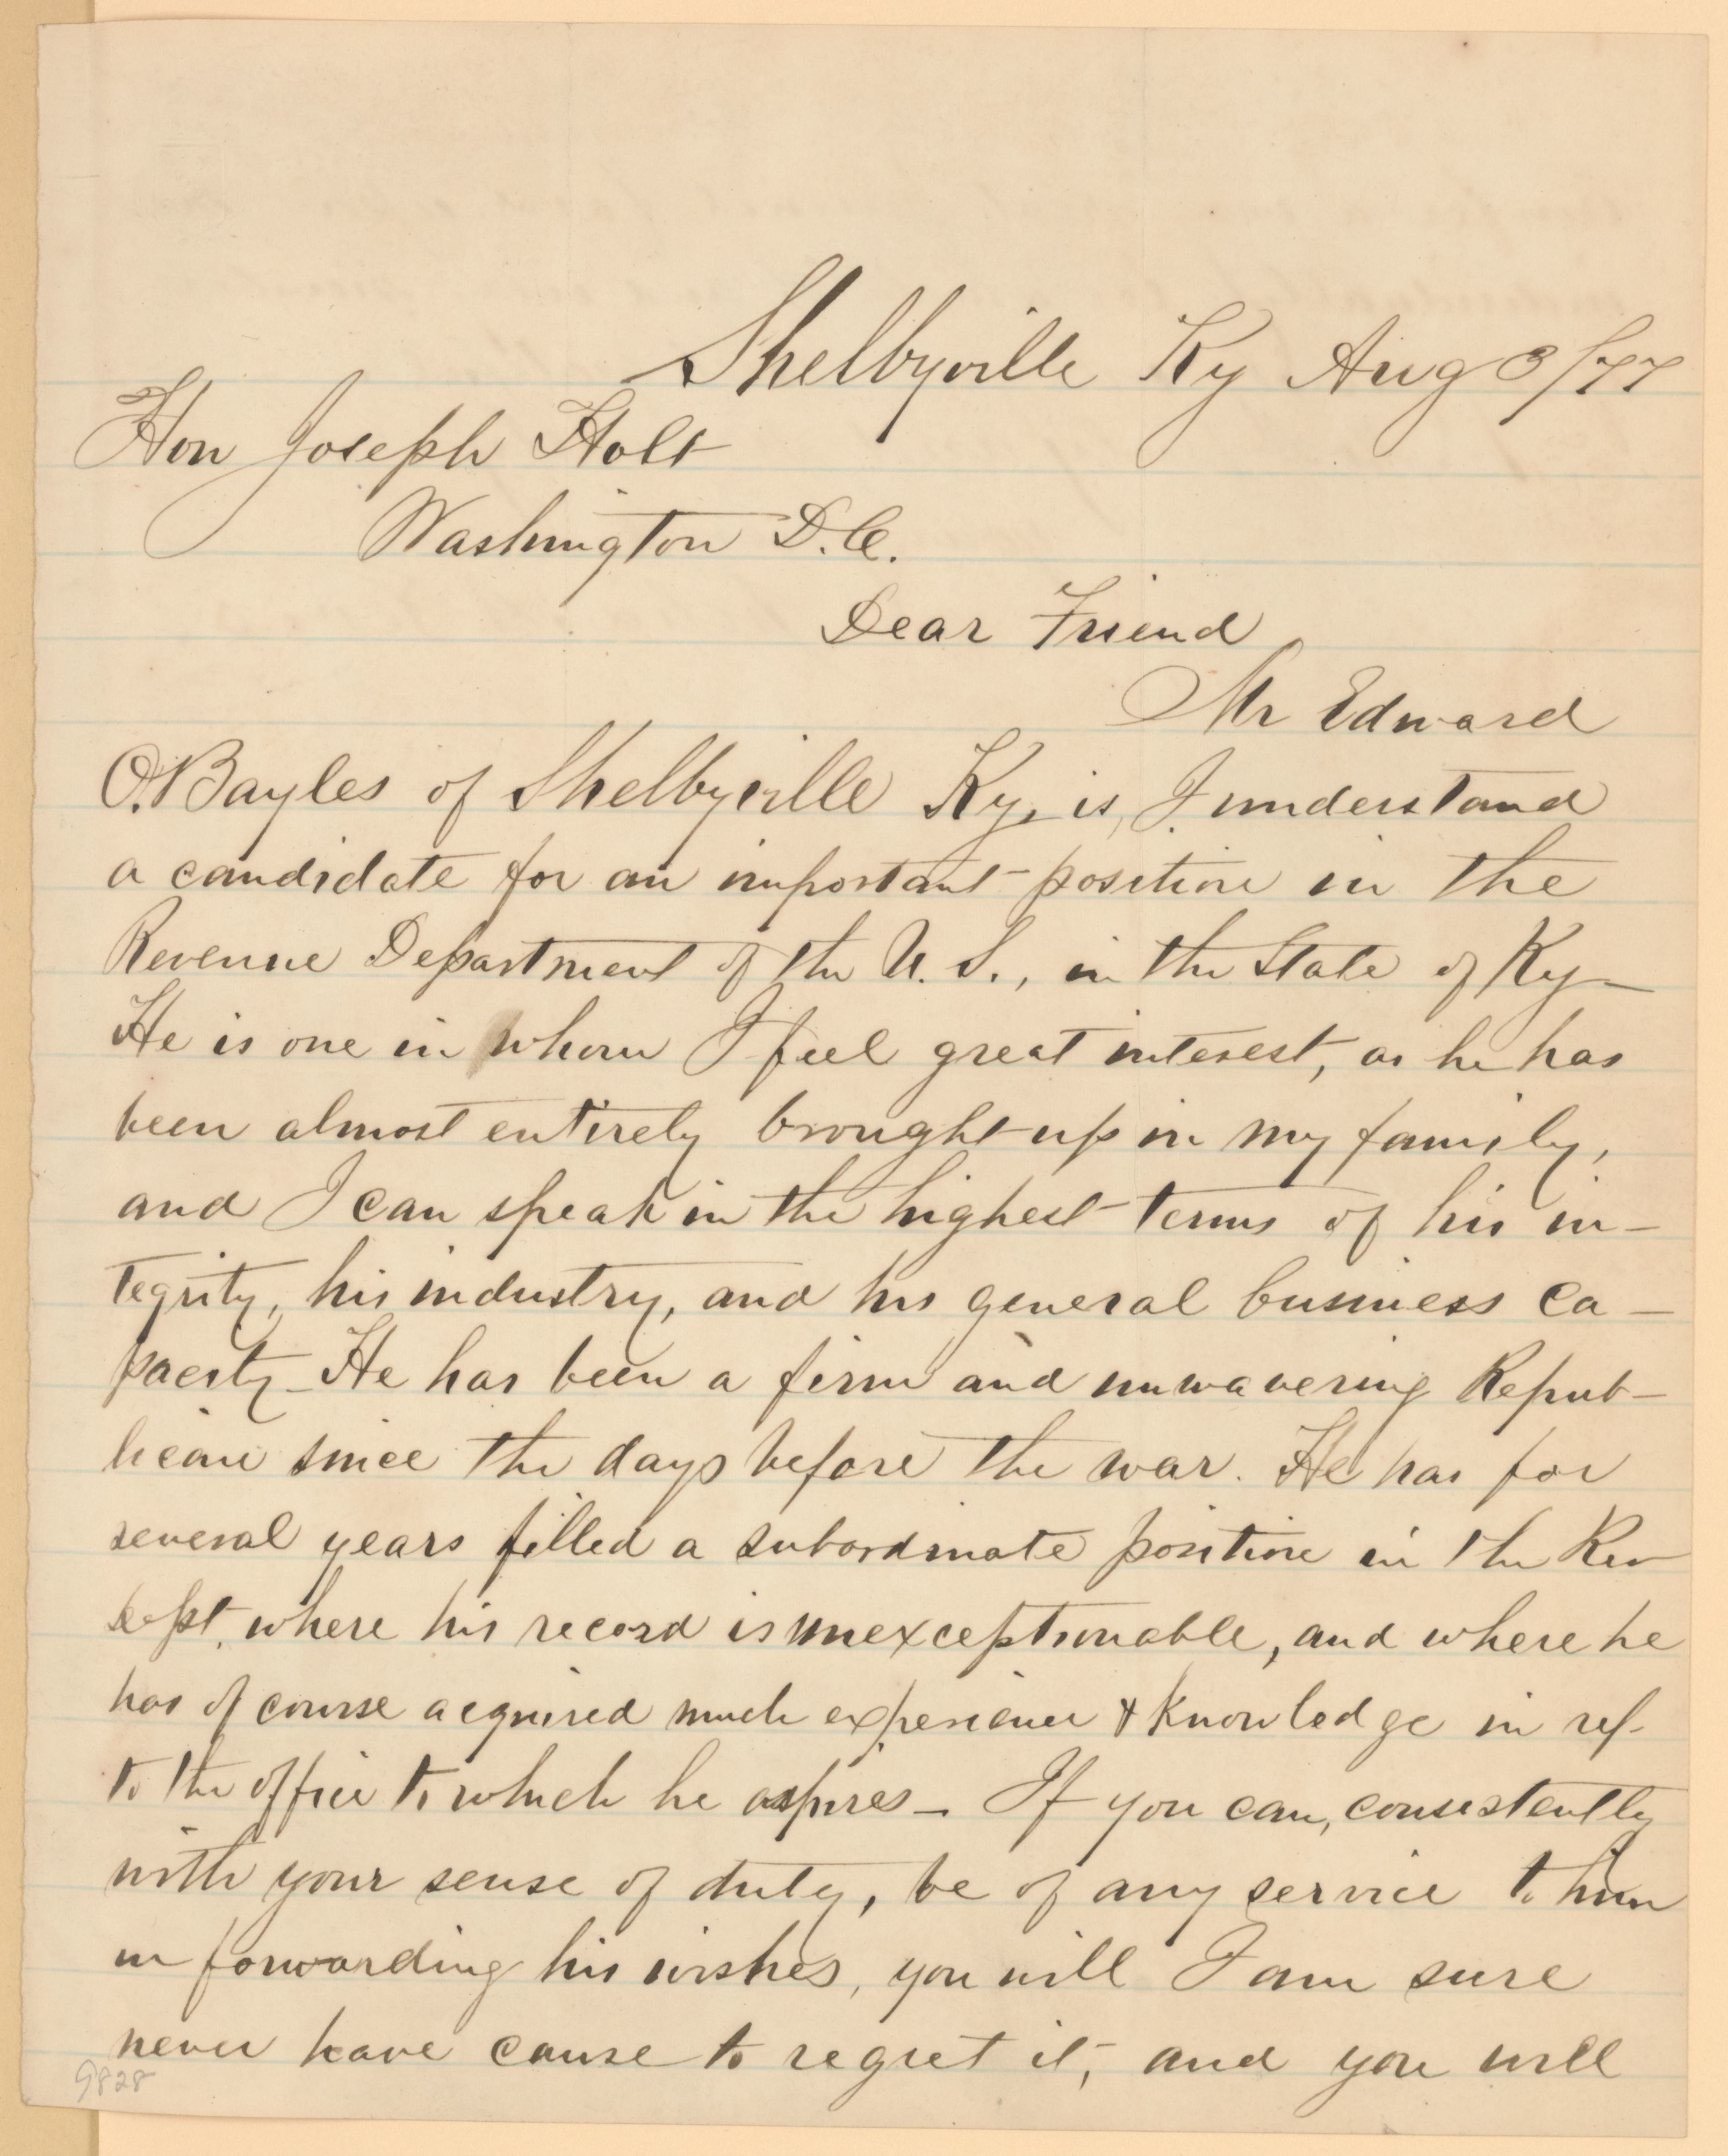 Shelbyville Ky Aug 3/77
Hon Joseph Holt
Washington D.C.
Dear Friend
Mr Edward
O. Bayles of Shelbyville Ky, is, I understand
a candidate for an important position in the
Revenue Department of the U. S., in the State of Ky—
He is one in whom I feel great interest, as he has
been almost entirely brought up in my family,
and I can speak in the highest terms of his in-
tegrity, his industry, and his general business ca-
pacity— He has been a firm and unwavering Repub-
lican since the days before the war. He has for
several years filled a subordinate position in the Rev
Dept, where his record is unexceptionable, and where he
has of course acquired much experience & knowledge in ref-
to the office to which he aspires— If you can, consistently
with your sense of duty, be of any service to him
in forwarding his wishes, you will I am sure
never have cause to regret it, and you will
9828